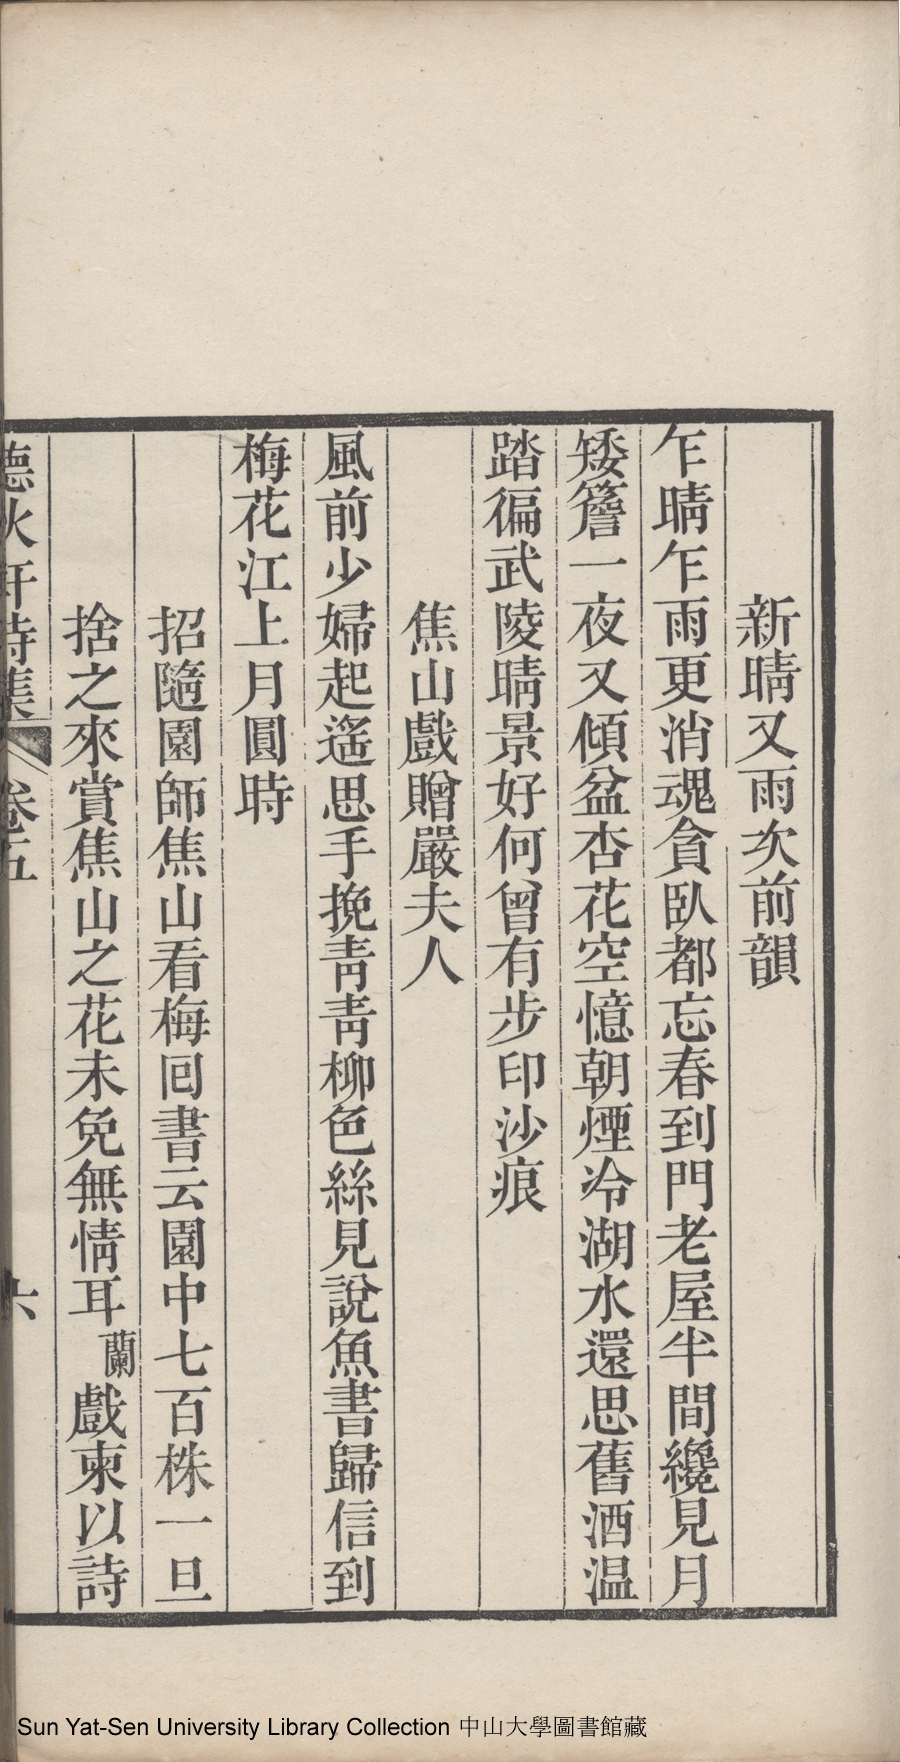 新晴又雨次前韻
乍晴乍雨更消魂貪臥都忘春到門老屋半間纔見月
矮簷一夜又傾盆杏花空憶朝煙冷湖水還思舊酒温
踏徧武陵晴景好何曾有步印沙痕
焦山戲贈嚴夫人
風前少婦起遙思手挽靑靑柳色絲見說魚書歸信到
梅花江上月圓時
招隨園師焦山看梅回書云園中七百株一旦
捨之來賞焦山之花未免無情耳蘭戲柬以詩
聽秋軒詩集 卷五 六
Sun Yat-Sen University Library Collection 中山大學圖書館藏